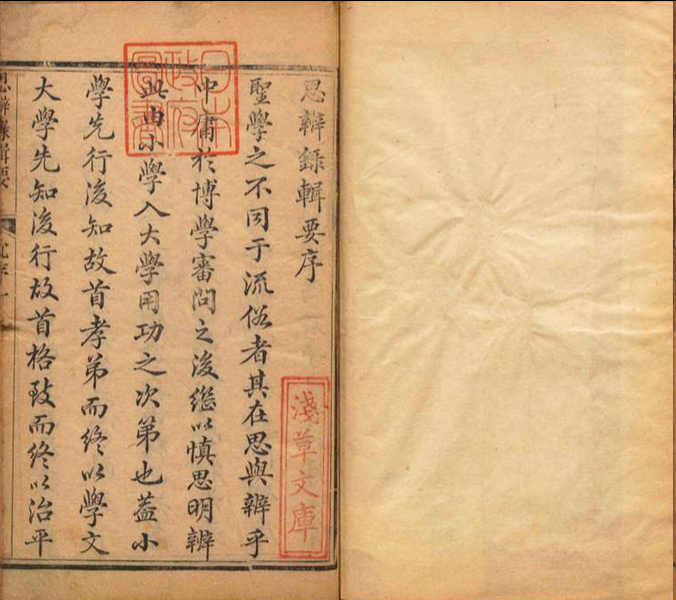 思辨錄輯要序
聖學之不同于流俗者其在思與辨乎
中庸於博學審問之後繼以慎思明辨
此由小學入大學用功之次第也蓋小
學先行後知故首孝弟而終以學文
大學先知後行故首格致而終以治平
思辨錄輯要
序一
日本
政府
圖書
淺草文庫